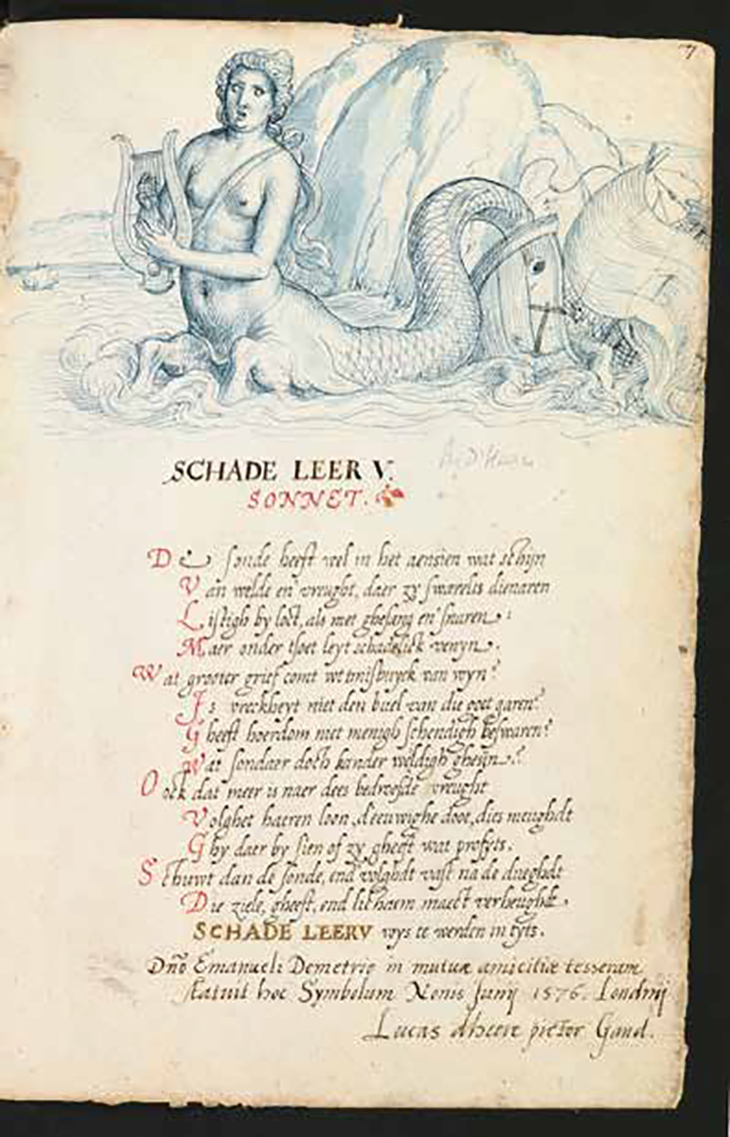 7
SCHADE LEER V.
SONNET.
De sonde heeft wel in het aensien wat schijn
Van welde en vreught, daer zy swerelts dienaren
Listigh by loct, als met ghesang en snaren:
Maer onder tsoet leyt schadelick venyn.
Wat grooter grief comt wt misbruyck van wyn?
Is vreckheyt niet den buel van die goet garen?
Gheeft hoerdom niet menigh schendigh beswaren?
Wat sondaer doch kander weldigh ghesijn?
Oock dat meer is naer dees bedroefde vreught
Volghet haeren loon, d'eeuwighe doot, dies meughdt
Ghy daer by sien of zy gheeft wat profyts.
Schuwt dan de sonde, end volghdt vast na de dueghdt
Die ziele, gheest, end lichaem maect verheughdt.
SCHADE LEERV wys te werden in tyts.
Dño Emanueli Demetrio in mutuæ amicitiæ tesseram
statuit hoc Symbolum Nonis Junij 1576. Londinij
Lucas dheere pictor Gand.